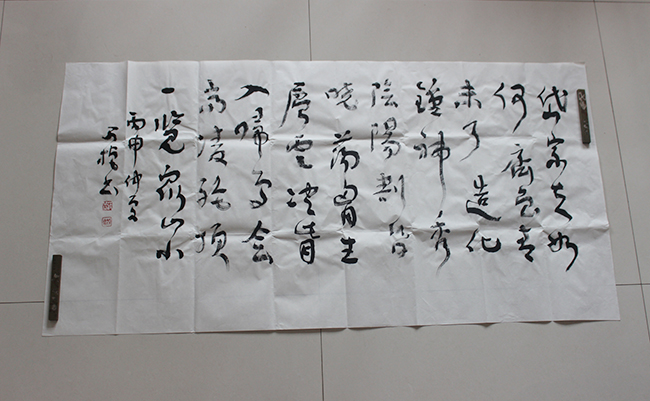 岱宗夫如
何齊魯青
未了造化
鍾神秀
陰陽割昏
曉蕩胸生
層雲決眥
入歸鳥會
當凌絶頂
一覽眾山小
丙申仲夏
书